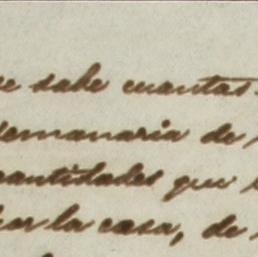 se sabe cuantas
Semanaria de
cantidades que
por la casa, de